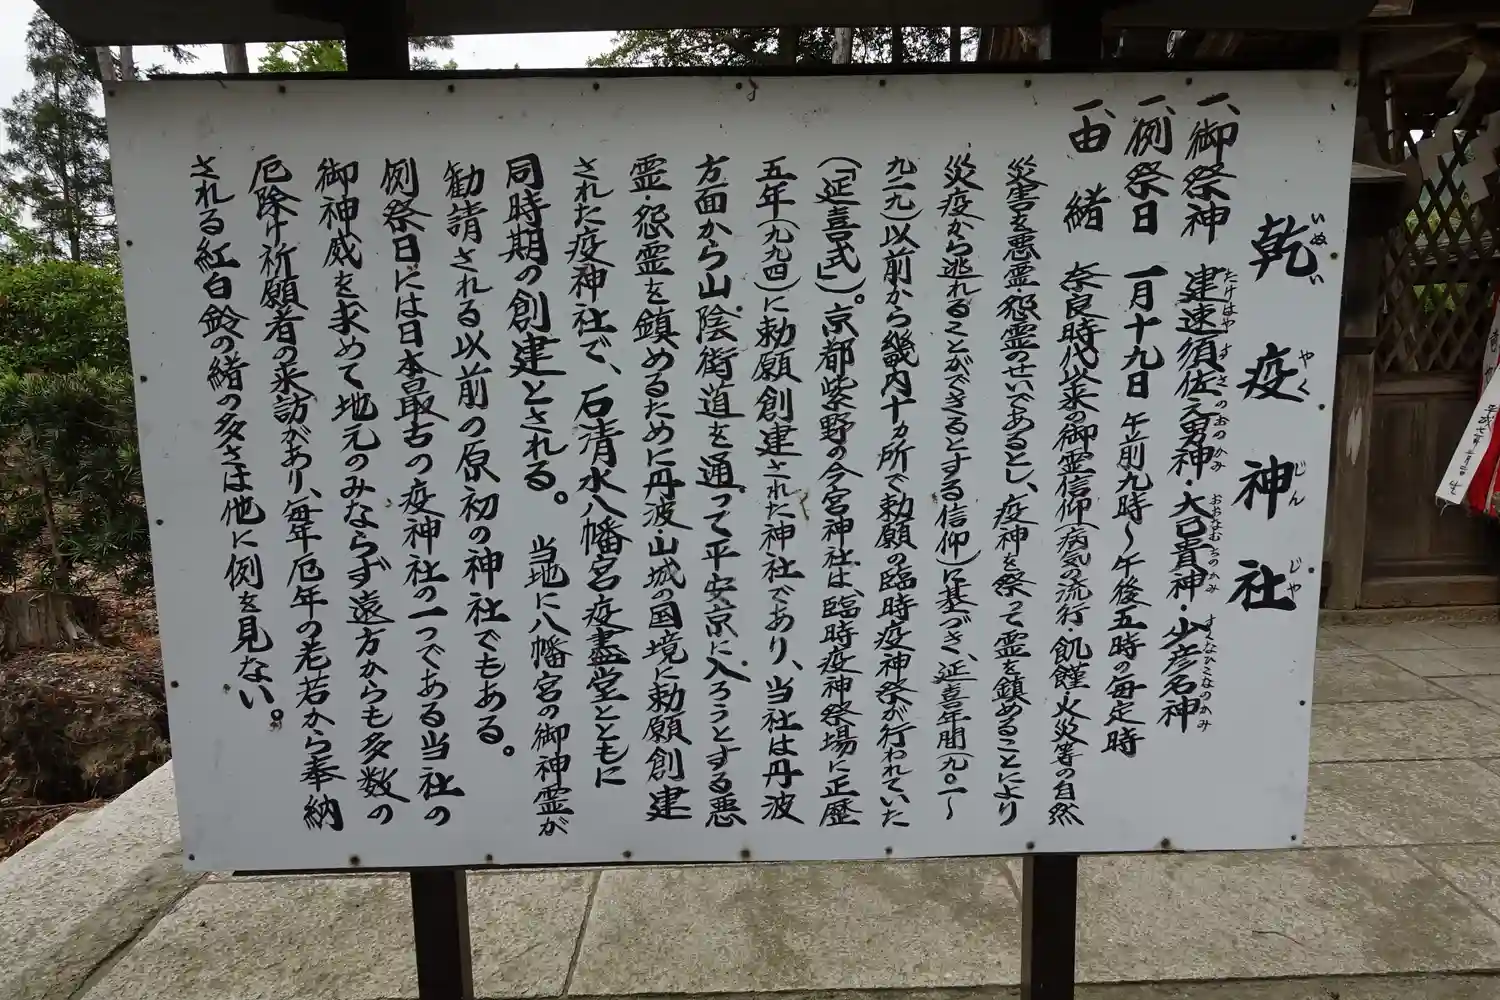 乾疫神社
いぬい やく じん じや
一、御祭神 建速須佐之男神・大己貴神・少彦名神
たけはや すさのおのかみ おおなむちのかみ すくなひこなのかみ
一、例祭日 一月十九日 午前九時〜午後五時の毎定時
一、由緒 奈良時代以来の御霊信仰(病気の流行・飢饉・火災等の自然
災害を悪霊・怨霊のせいであるとし、疫神を祭って霊を鎮めることにより
災疫から逃れることができるとする信仰)に基づき、延喜年間(九〇一〜
九二九)以前から畿内十ヵ所で勅願の臨時疫神祭が行われていた
(「延喜式」)。京都紫野の今宮神社は、臨時疫神祭場に正歴
五年(九九四)に勅願創建された神社であり、当社は丹波
方面から山陰街道を通って平安京に入ろうとする悪
霊・怨霊を鎮めるために丹波・山城の国境に勅願創建
された疫神社で、石清水八幡宮疫盡堂とともに
同時期の創建とされる。当地に八幡宮の御神霊が
勧請される以前の原初の神社でもある。
例祭日には日本最古の疫神社の一つである当社の
御神威を求めて地元のみならず遠方からも多数の
厄除け祈願者の来訪があり、毎年厄年の老若から奉納
される紅白鈴の緒の多さは他に例を見ない。